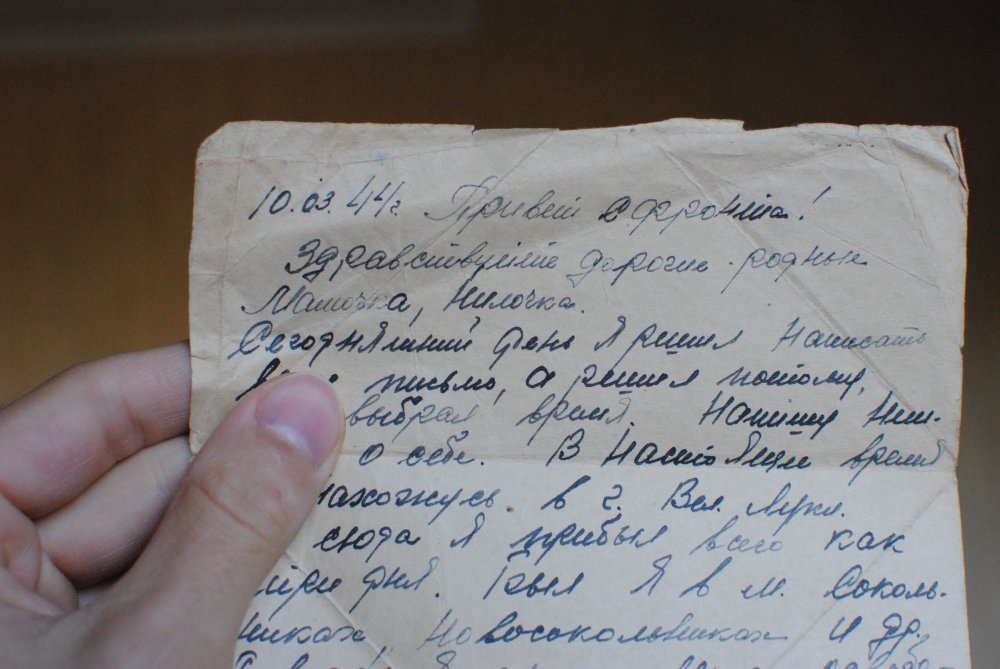 10.03.44г. Привет с фронта!
Здравствуйте дорогие родные
Мамочка, Нилочка.
Сегодняшний день я решил написать
письмо, а решил потому,
выбрал время. Напишу нем-
о себе. В настоящее время
нахожусь в г. Вел. Луки.
сюда я прибыл всего как
три дня. Был я в м. Соколь-
никах Новосокольниках и др.